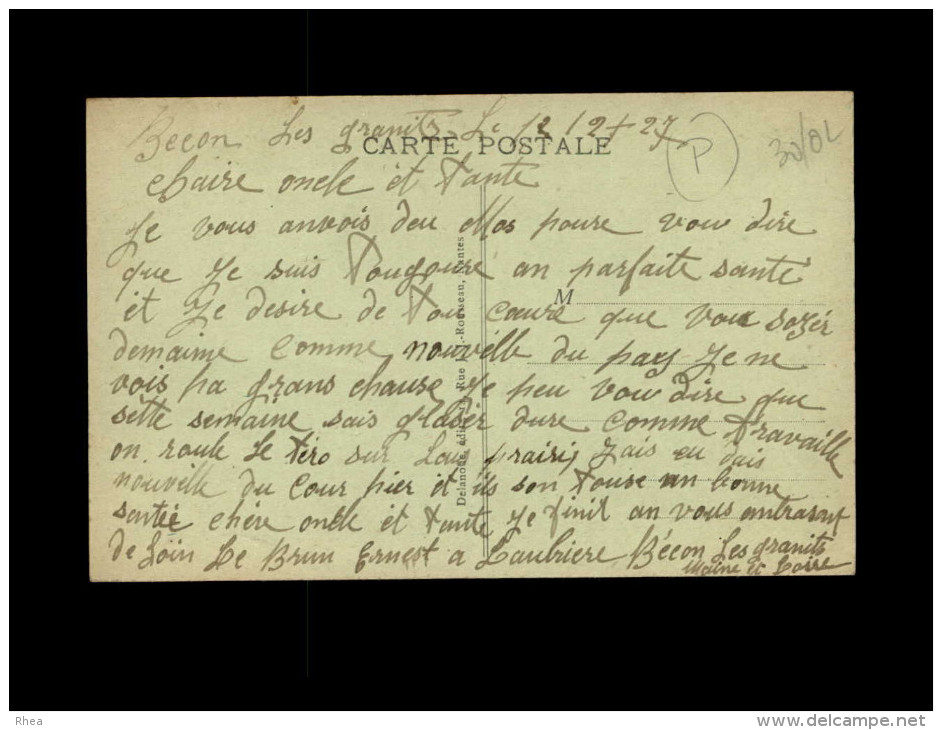 Becon Les granits Le 12 12 + 27
CARTE POSTALE
P
30/02
chaire oncle et tante
Je vous anvois deu Mos poure vou dire
que Je suis Tougoure an parfaite santé
et Je desire de tou cœure que vou soyér
M
demaime comme nouvélle du pays Je ne
vois pa grans chause Je peu vou dire que
sétte semaine sais glasér dure comme travaille
on roule le téro sur Lais prairis Jais eu dais
nouvélle du cour pier et ils son touse an bonne
santée chère oncle et tante Je finit an vous anbrasant
de Loin Le Brun Ernest a Laubriere Bécon Les granits
Maine et Loire
Delanoue, édit., Rue J.-J.-Rousseau, Nantes
Rhea
www.delcampe.net